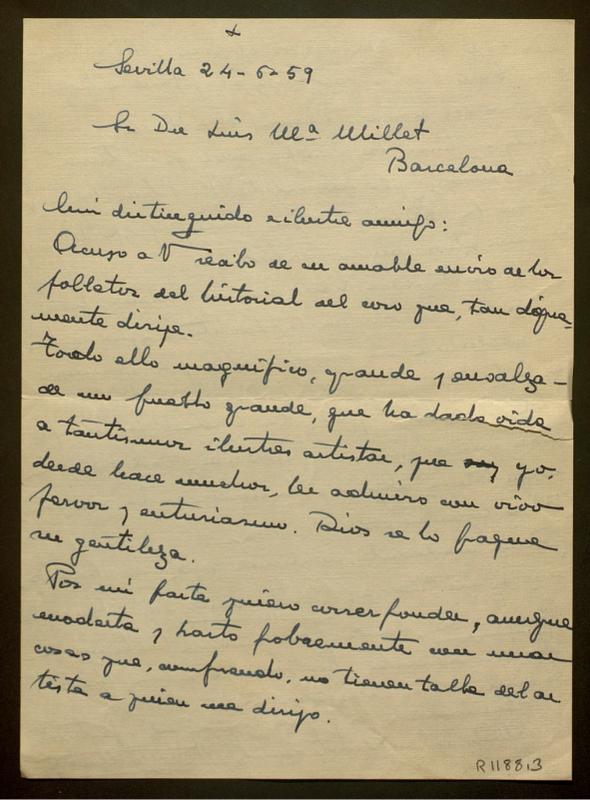 +
Sevilla 24-6-59
Sr Don Luis Mª Millet
Barcelona
Mui distinguido e ilustre amigo:
Acuso a V recibo de su amable envio de los
folletos del historial del coro que, tan digna-
mente dirije.
Todo ello magnífico, grande y
de un pueblo grande, que ha dado vida
a tantisimos ilustres artistas, que yo,
desde hace muchos, les admiro con vivo
fervor y entusiasmo. Dios se lo pague
su gentileza.
Por mi parte quiero corresponder, aunque
modesta y harto pobremente con unas
cosas que, comprendo, no tienen talla del ar
tista a quien me dirijo.
R.1188,3